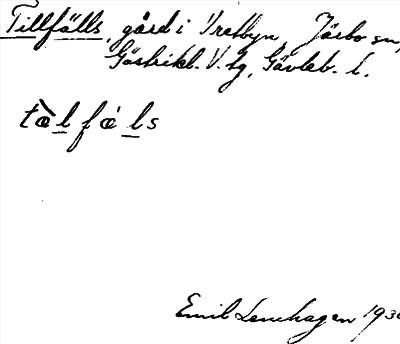 Tillfälls, gård i Vretbyn, Järbo sn,
Gästrikl. V. tg, Gävleb. l.
tæ̀lfǽls
Emil Lenhagen 193